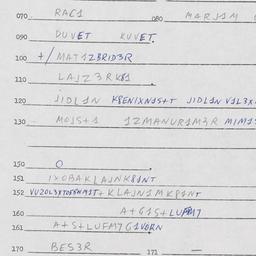 070 RAC1 080 MARJAM
090 DUVET KUVET.
100 +/ MAT1ZBRID3R
110 LAJZ3RK81
120 JIDL1N K8ENIXN1S+T JIDL1N V1L3X
130 MOJS+1 1ZMANUR1M3R MIM1
150 O
151 IXOBAKLAJNK81NT
152 + KLAJN1MK81NT
160 A+G1S+LUFM7
161 A+S+LUFM7G1VORN
170 BES3R 171 —